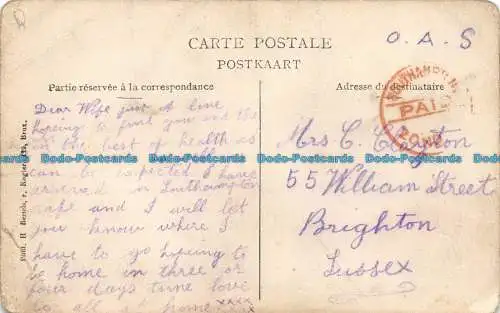 CARTE POSTALE
POSTKAART
O. A. S
Partie réservée à la correspondance
Adresse du destinataire
Dear Wife just A line
hoping to find you and the
in the best of health as
can be expected I have
arrived in Southampton
safe and I will let
you know where I
have to go hoping to
be home in three or
four days time love
to all at home xxxx
Mrs C.
55 William Street
Brighton
Sussex
SOUTHAMPTON
PAID
Edit. H
Brux.
Dodo-Postcards Dodo-Postcards Dodo-Postcards Dodo-Postcards